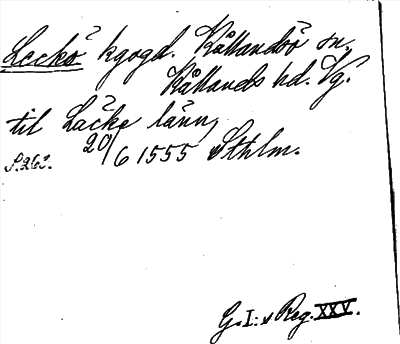 Leckö kgogd. Kållandsö sn.
Kållands hd. Vg.
til Läcke länn
20/6 1555 Sthlm.
S. 262.
G. I:s Reg. XXV.